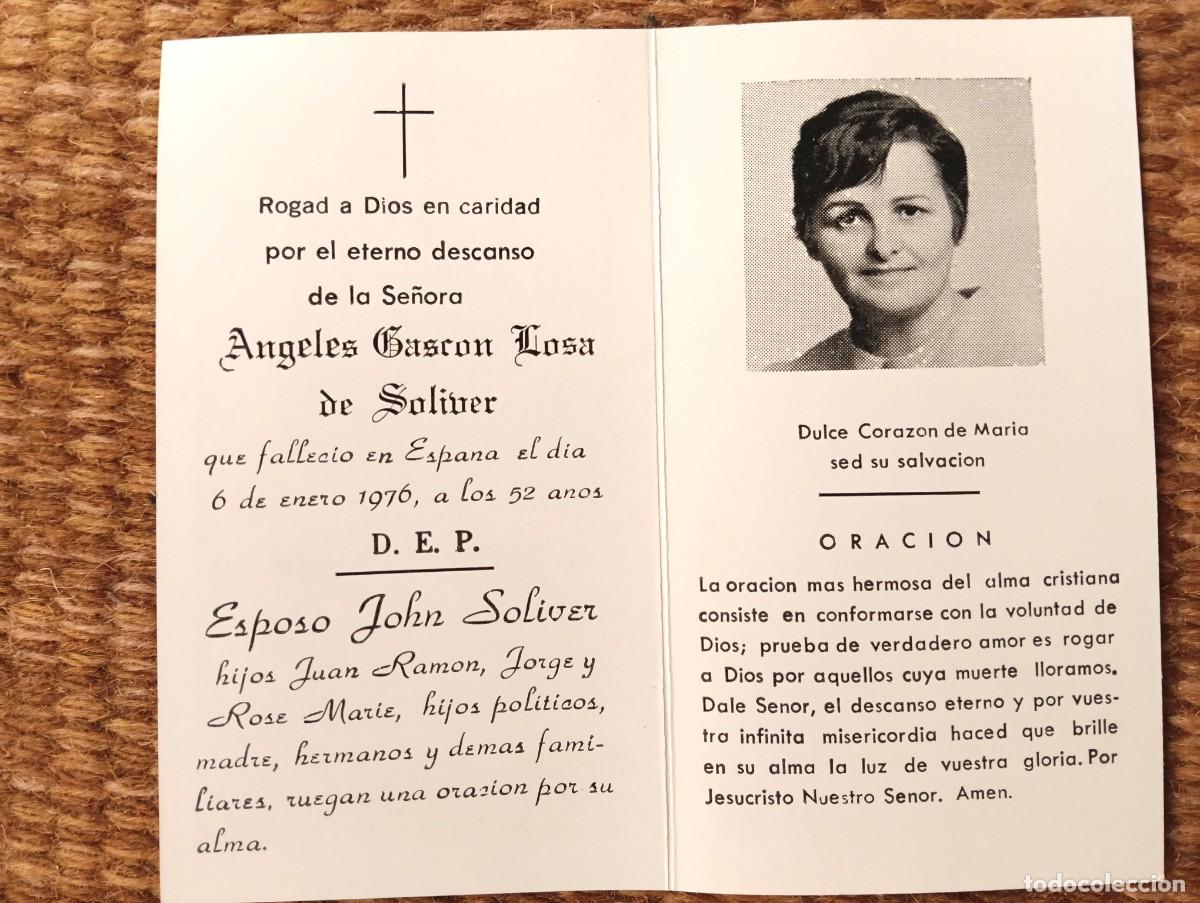 Rogad a Dios en caridad
por el eterno descanso
de la Señora
Angeles Gascon Losa
de Soliver
que fallecio en Espana el dia
6 de enero 1976, a los 52 anos
D. E. P.
Esposo John Soliver
hijos Juan Ramon, Jorge y
Rose Marie, hijos politicos,
madre, hermanos y demas fami-
liares, ruegan una oracion por su
alma.
Dulce Corazon de Maria
sed su salvacion
ORACION
La oracion mas hermosa del alma cristiana
consiste en conformarse con la voluntad de
Dios; prueba de verdadero amor es rogar
a Dios por aquellos cuya muerte lloramos.
Dale Senor, el descanso eterno y por vues-
tra infinita misericordia haced que brille
en su alma la luz de vuestra gloria. Por
Jesucristo Nuestro Senor. Amen.
todocoleccion